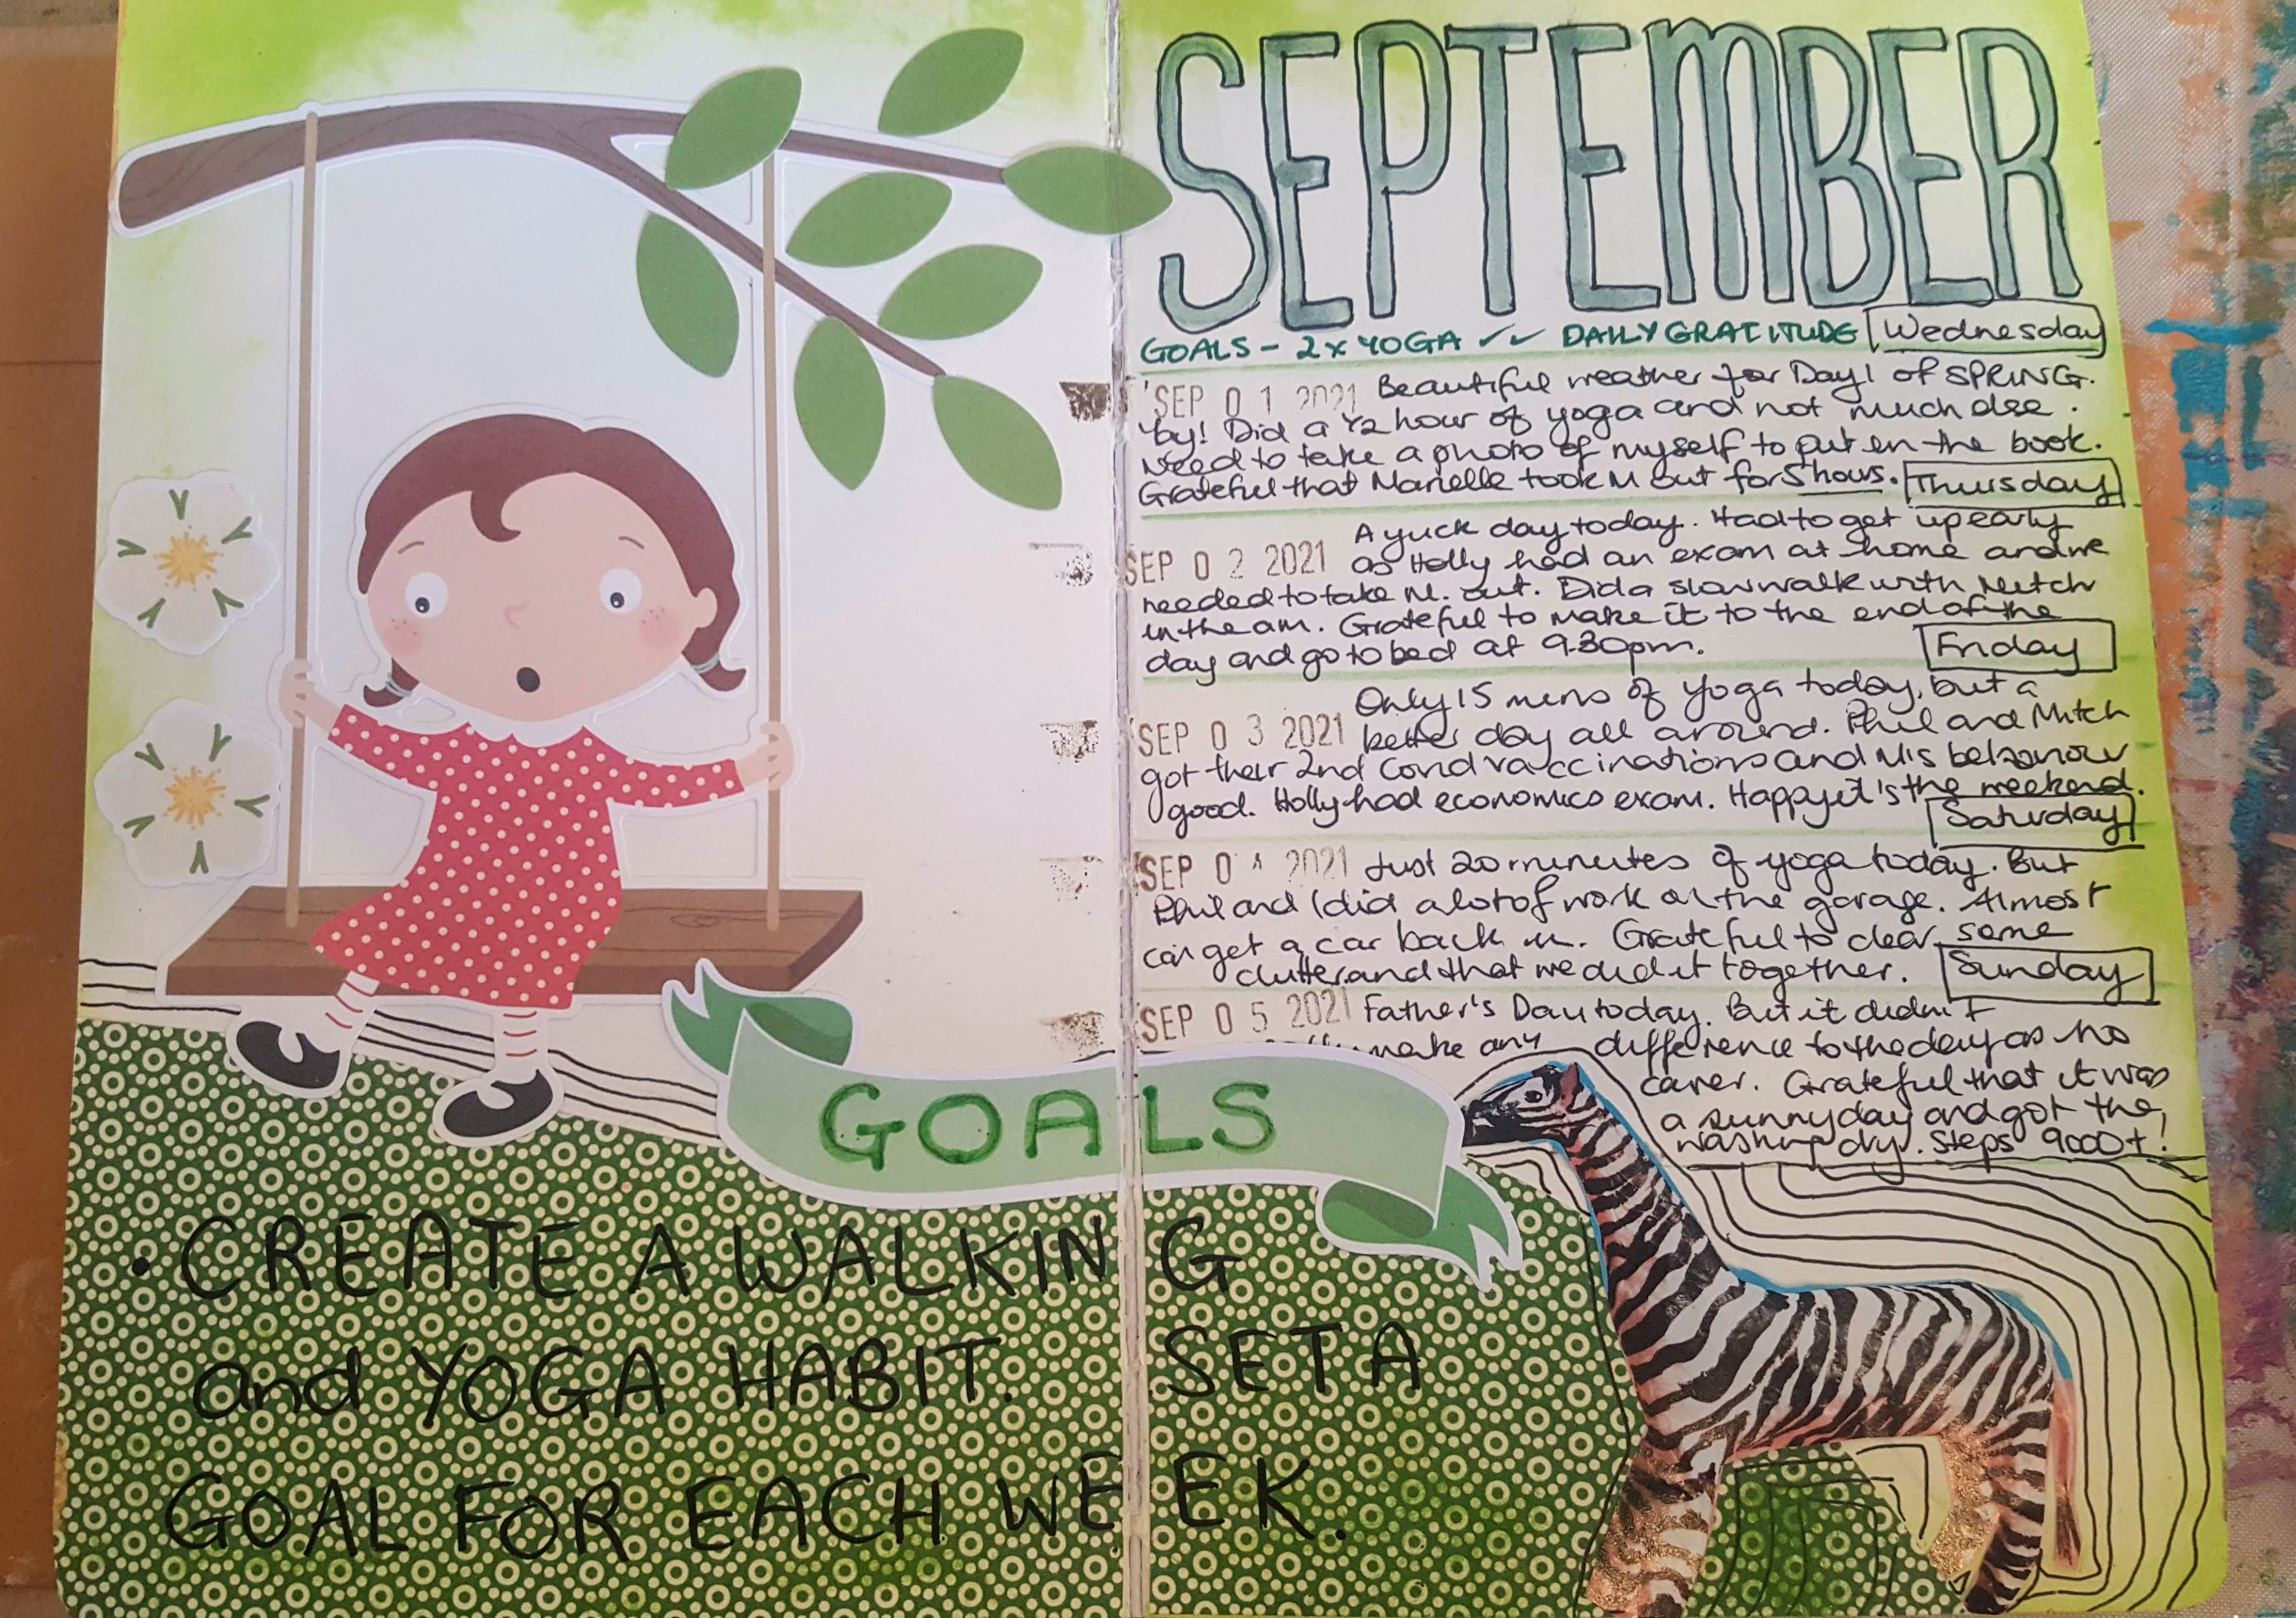 SEPTEMBER
GOALS - 2x YOGA ✓✓ DAILY GRATITUDE Wednesday
SEP 01 2021 Beautiful weather for Day 1 of SPRING.
Yay! Did a 1/2 hour of yoga and not much else.
Need to take a photo of myself to put in the book.
Grateful that Marielle took M out for 5 hours. Thursday
A yuck day today. Had to get up early
SEP 02 2021 as Holly had an exam at home and we
needed to take M. out. Did a slow walk with Mitch
in the am. Grateful to make it to the end of the
day and go to bed at 9.30pm. Friday
Only 15 mins of yoga today, but a
SEP 03 2021 better day all around. Phil and Mitch
got their 2nd Covid vaccinations and M's behaviour
good. Holly had economics exam. Happy it's the weekend.
Saturday
SEP 04 2021 Just 20 minutes of yoga today. But
Phil and I did a lot of work on the garage. Almost
can get a car back in. Grateful to clear some
clutter and that we did it together. Sunday
SEP 05 2021 Father's Day today. But it didn't
make any difference to the day as no
carer. Grateful that it was
a sunny day and got the
washing dry. Steps 9000+!
GOALS
• CREATE A WALKING
and YOGA HABIT. SET A
GOAL FOR EACH WEEK.